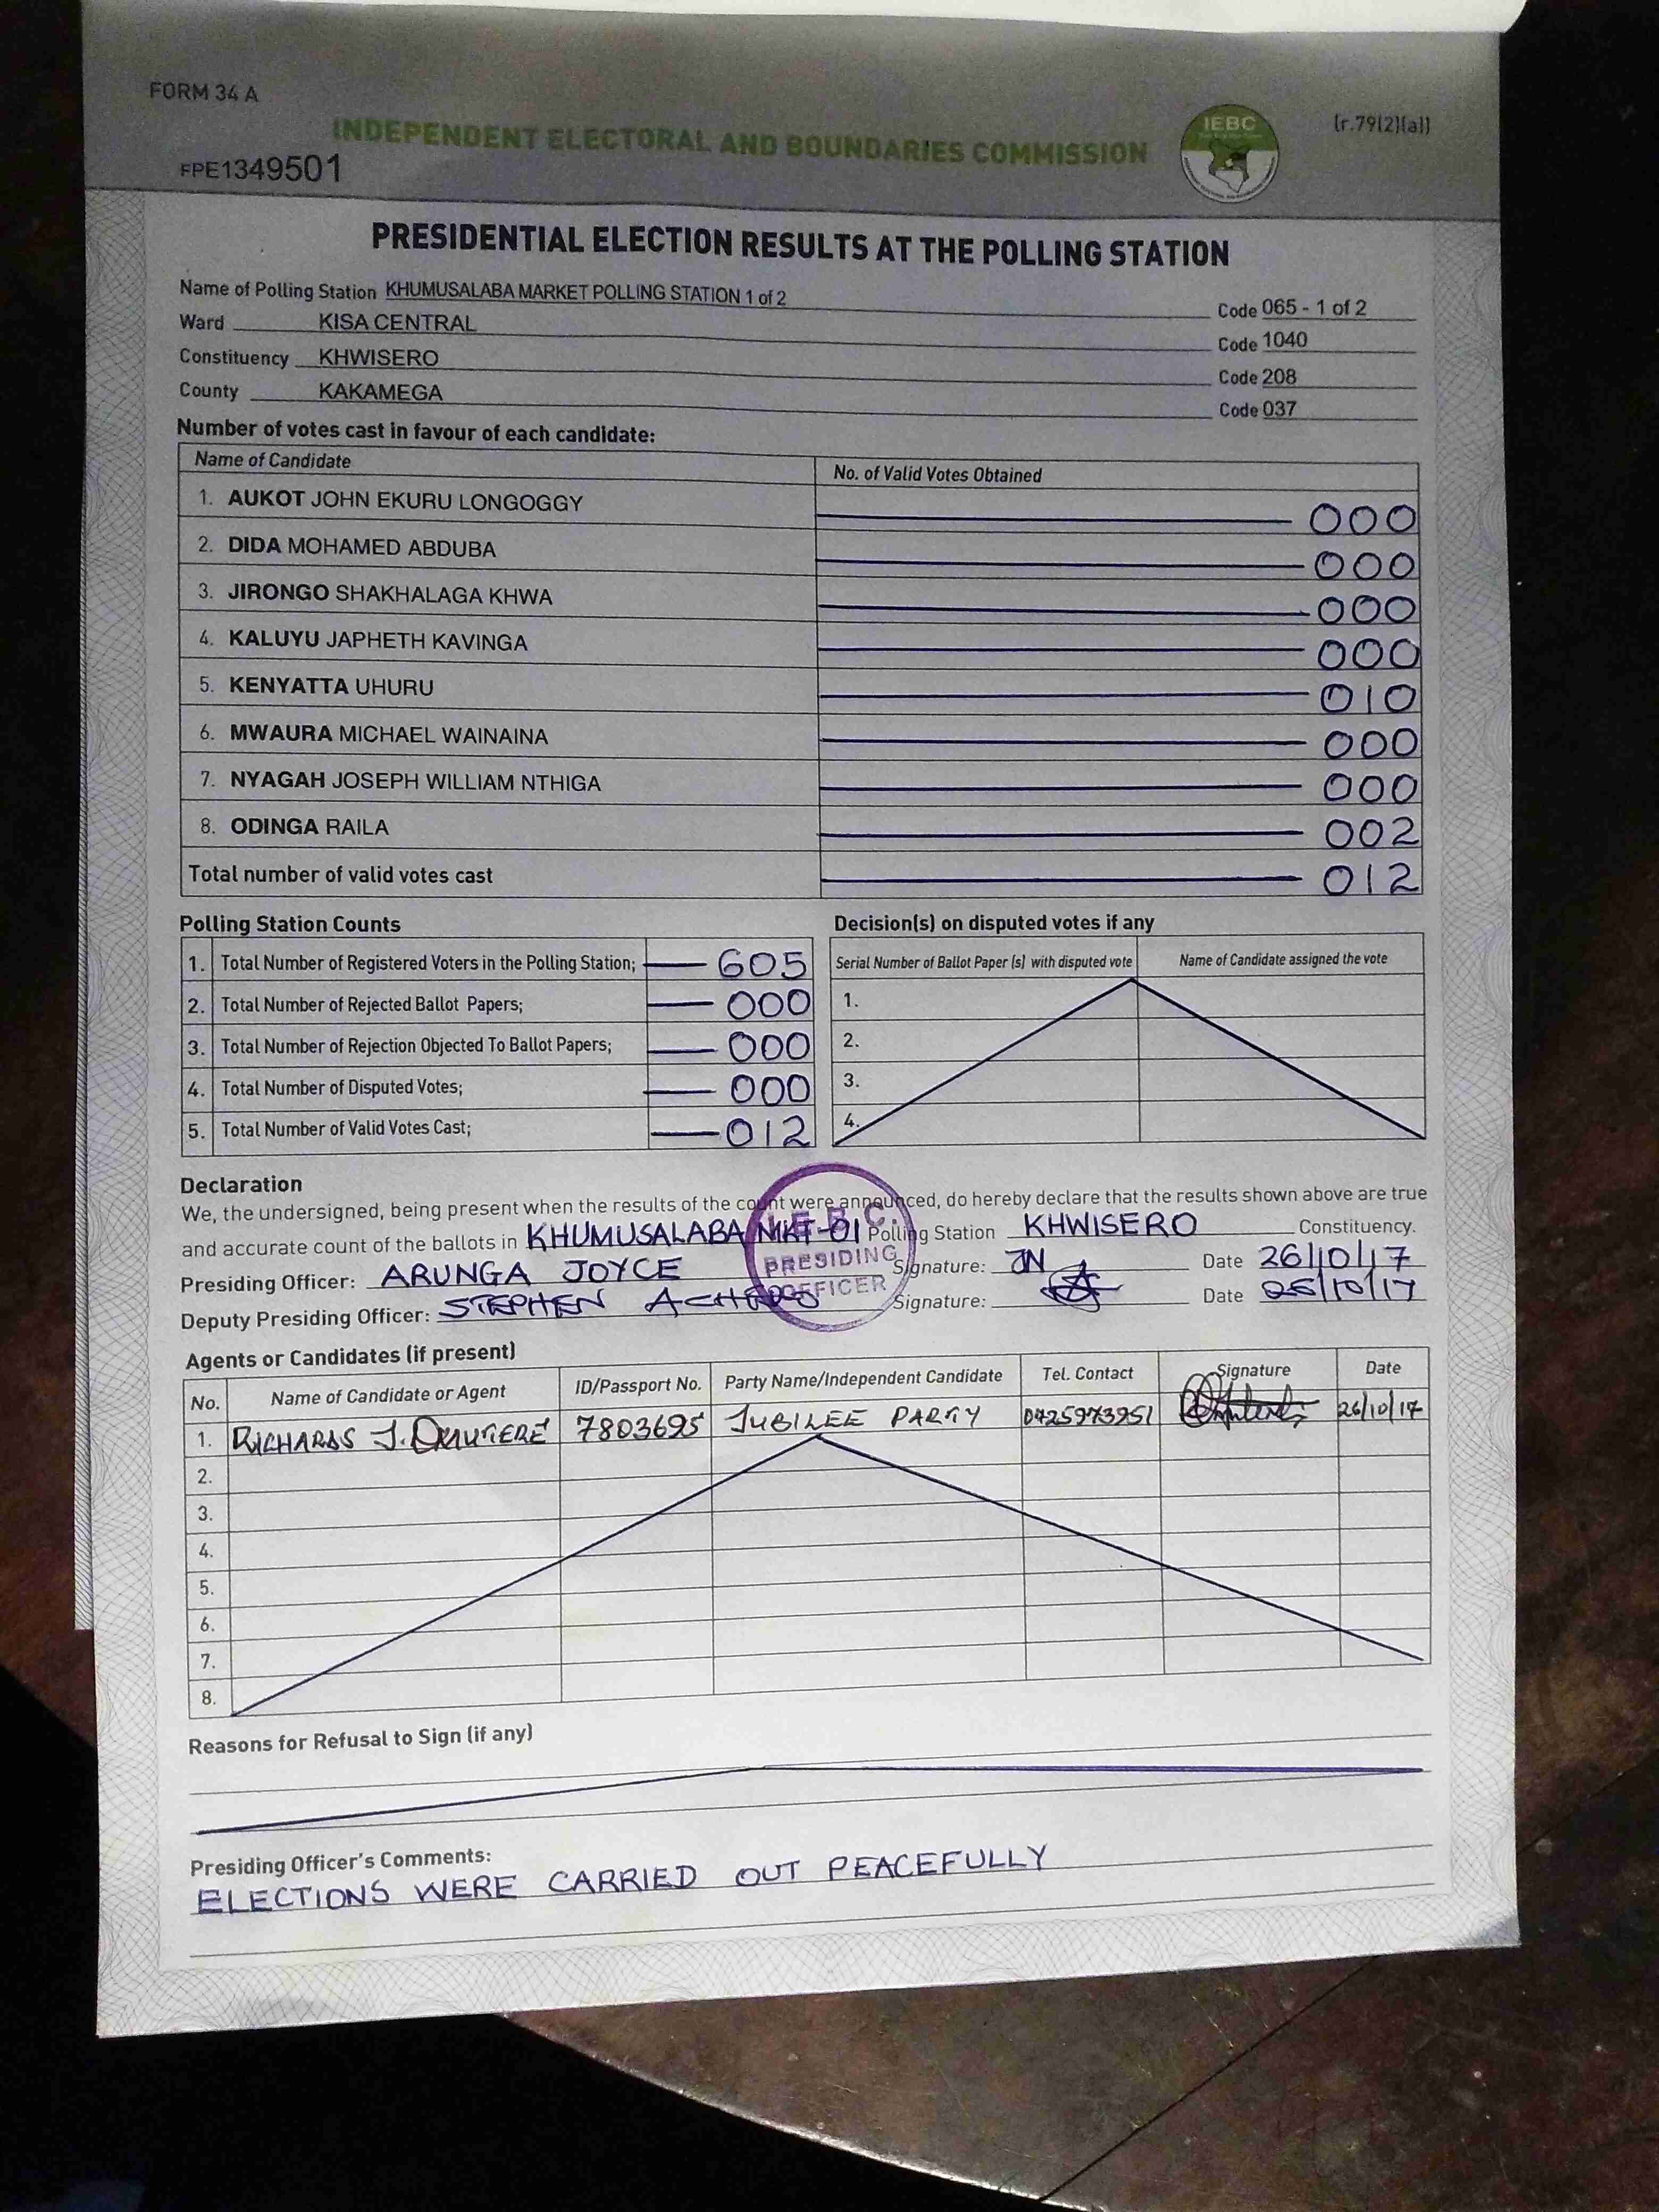 FORM 34 A
INDEPENDENT ELECTORAL AND BOUNDARIES COMMISSION
IEBC
(r.79(2)(a))
FPE1349501
PRESIDENTIAL ELECTION RESULTS AT THE POLLING STATION
Name of Polling Station KHUMUSALABA MARKET POLLING STATION 1 of 2 Code 065 - 1 of 2
Ward KISA CENTRAL Code 1040
Constituency KHWISERO Code 208
County KAKAMEGA Code 037
Number of votes cast in favour of each candidate:
Name of Candidate No. of Valid Votes Obtained
1. AUKOT JOHN EKURU LONGOGGY 000
2. DIDA MOHAMED ABDUBA 000
3. JIRONGO SHAKHALAGA KHWA 000
4. KALUYU JAPHETH KAVINGA 000
5. KENYATTA UHURU 010
6. MWAURA MICHAEL WAINAINA 000
7. NYAGAH JOSEPH WILLIAM NTHIGA 000
8. ODINGA RAILA 002
Total number of valid votes cast 012
Polling Station Counts
1. Total Number of Registered Voters in the Polling Station; 605
2. Total Number of Rejected Ballot Papers; 000
3. Total Number of Rejection Objected To Ballot Papers; 000
4. Total Number of Disputed Votes; 000
5. Total Number of Valid Votes Cast; 012
Decision(s) on disputed votes if any
Serial Number of Ballot Paper (s) with disputed vote Name of Candidate assigned the vote
1.
2.
3.
4.
Declaration
We, the undersigned, being present when the results of the count were announced, do hereby declare that the results shown above are true
and accurate count of the ballots in KHUMUSALABA MKT-01 Polling Station KHWISERO Constituency.
Presiding Officer: ARUNGA JOYCE Signature: JN Date 26/10/17
Deputy Presiding Officer: STEPHEN Signature: Date 26/10/17
I.E.B.C.
PRESIDING
OFFICER
Agents or Candidates (if present)
No. Name of Candidate or Agent ID/Passport No. Party Name/Independent Candidate Tel. Contact Signature Date
1. RICHARDS J. 7803695 JUBILEE PARTY 0725973951 26/10/17
2.
3.
4.
5.
6.
7.
8.
Reasons for Refusal to Sign (if any)
Presiding Officer's Comments:
ELECTIONS WERE CARRIED OUT PEACEFULLY